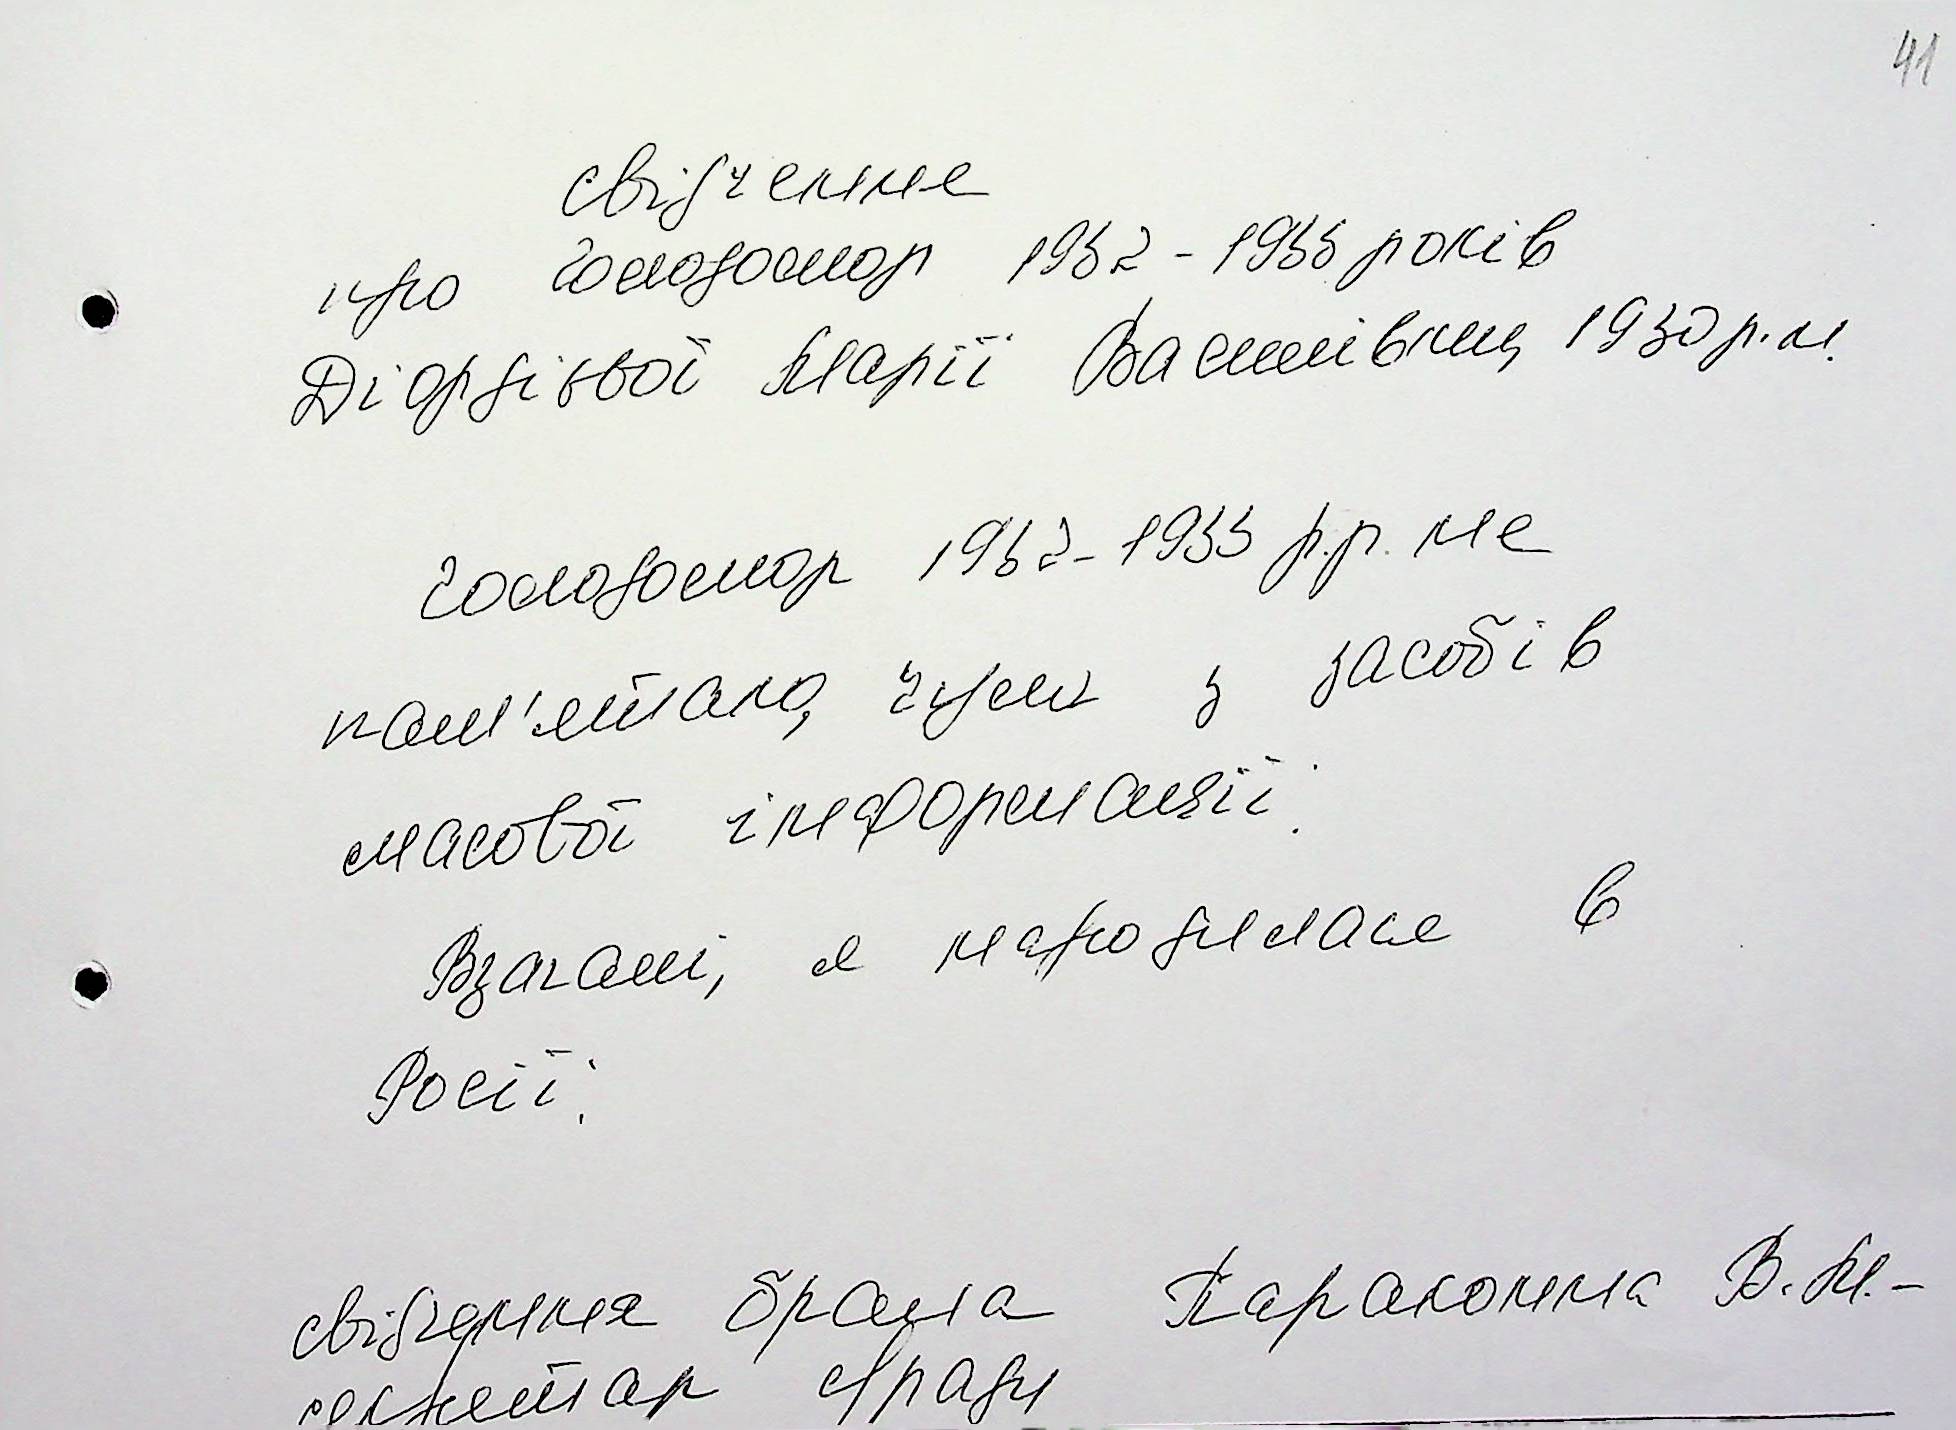 41
свідчення
про голодомор 1932-1933 років
Марії Василівни, 1930 р.н.
голодомор 1932-1933 р.р. не
пам'ятаю, чула з засобів
масової інформації.
Взагалі, я народилася в
Росії.
свідчення брала Параконна В.М.-
секретар с/ради